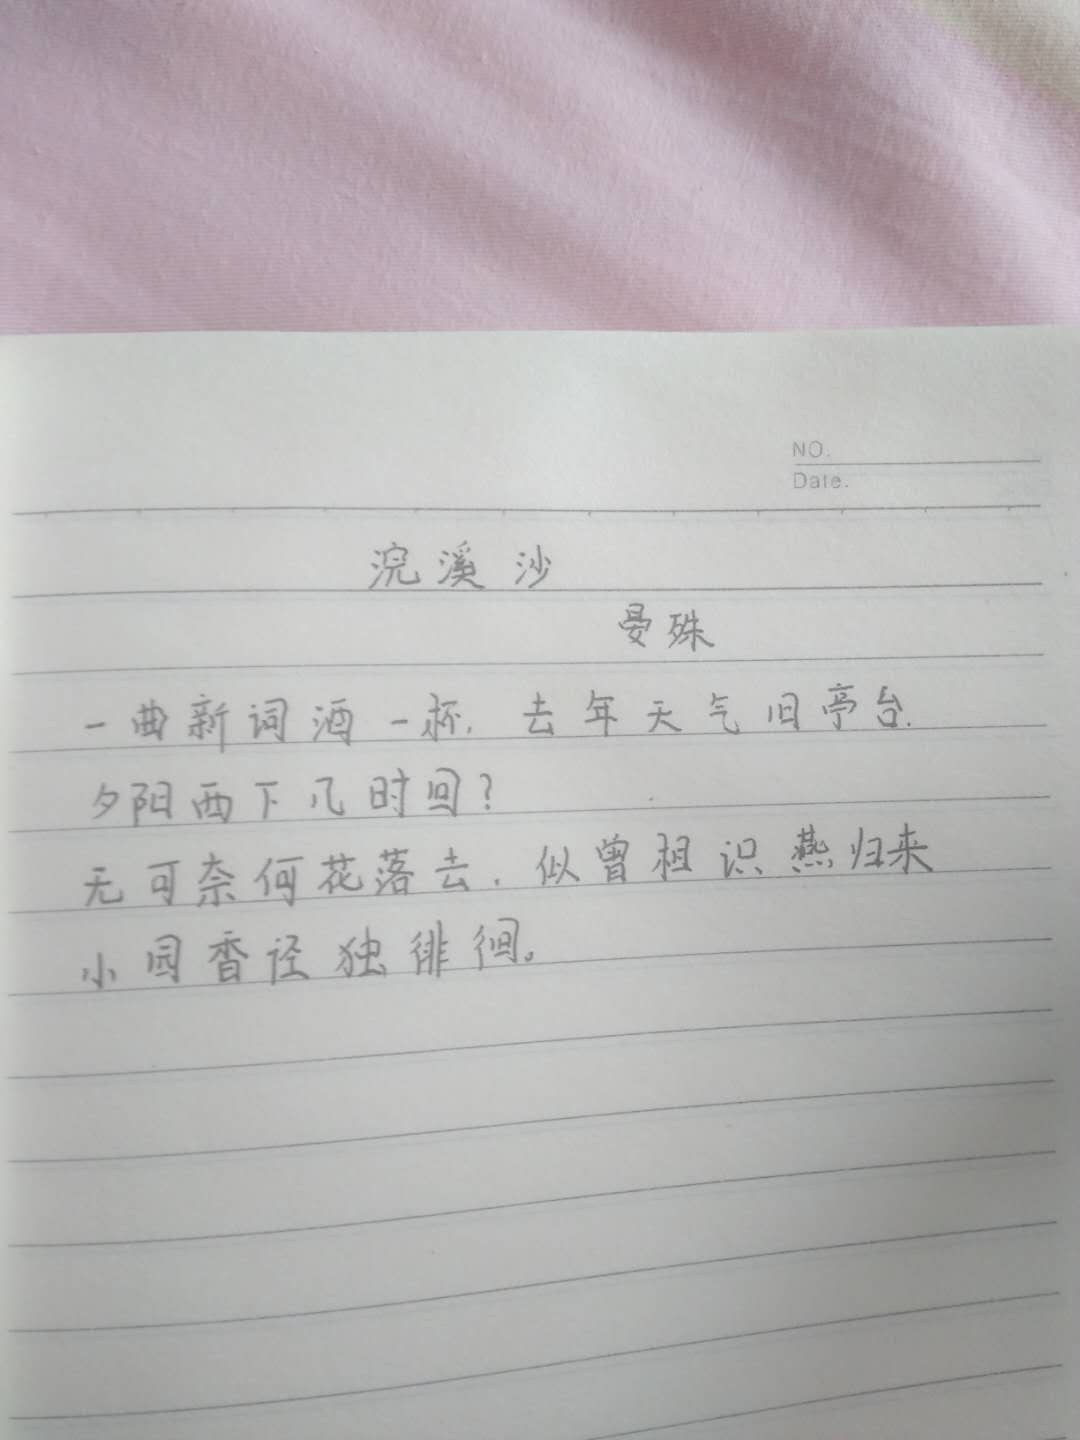 NO.
Date.
浣溪沙
晏殊
一曲新词酒一杯,去年天气旧亭台.
夕阳西下几时回?
无可奈何花落去.似曾相识燕归来
小园香径独徘徊。